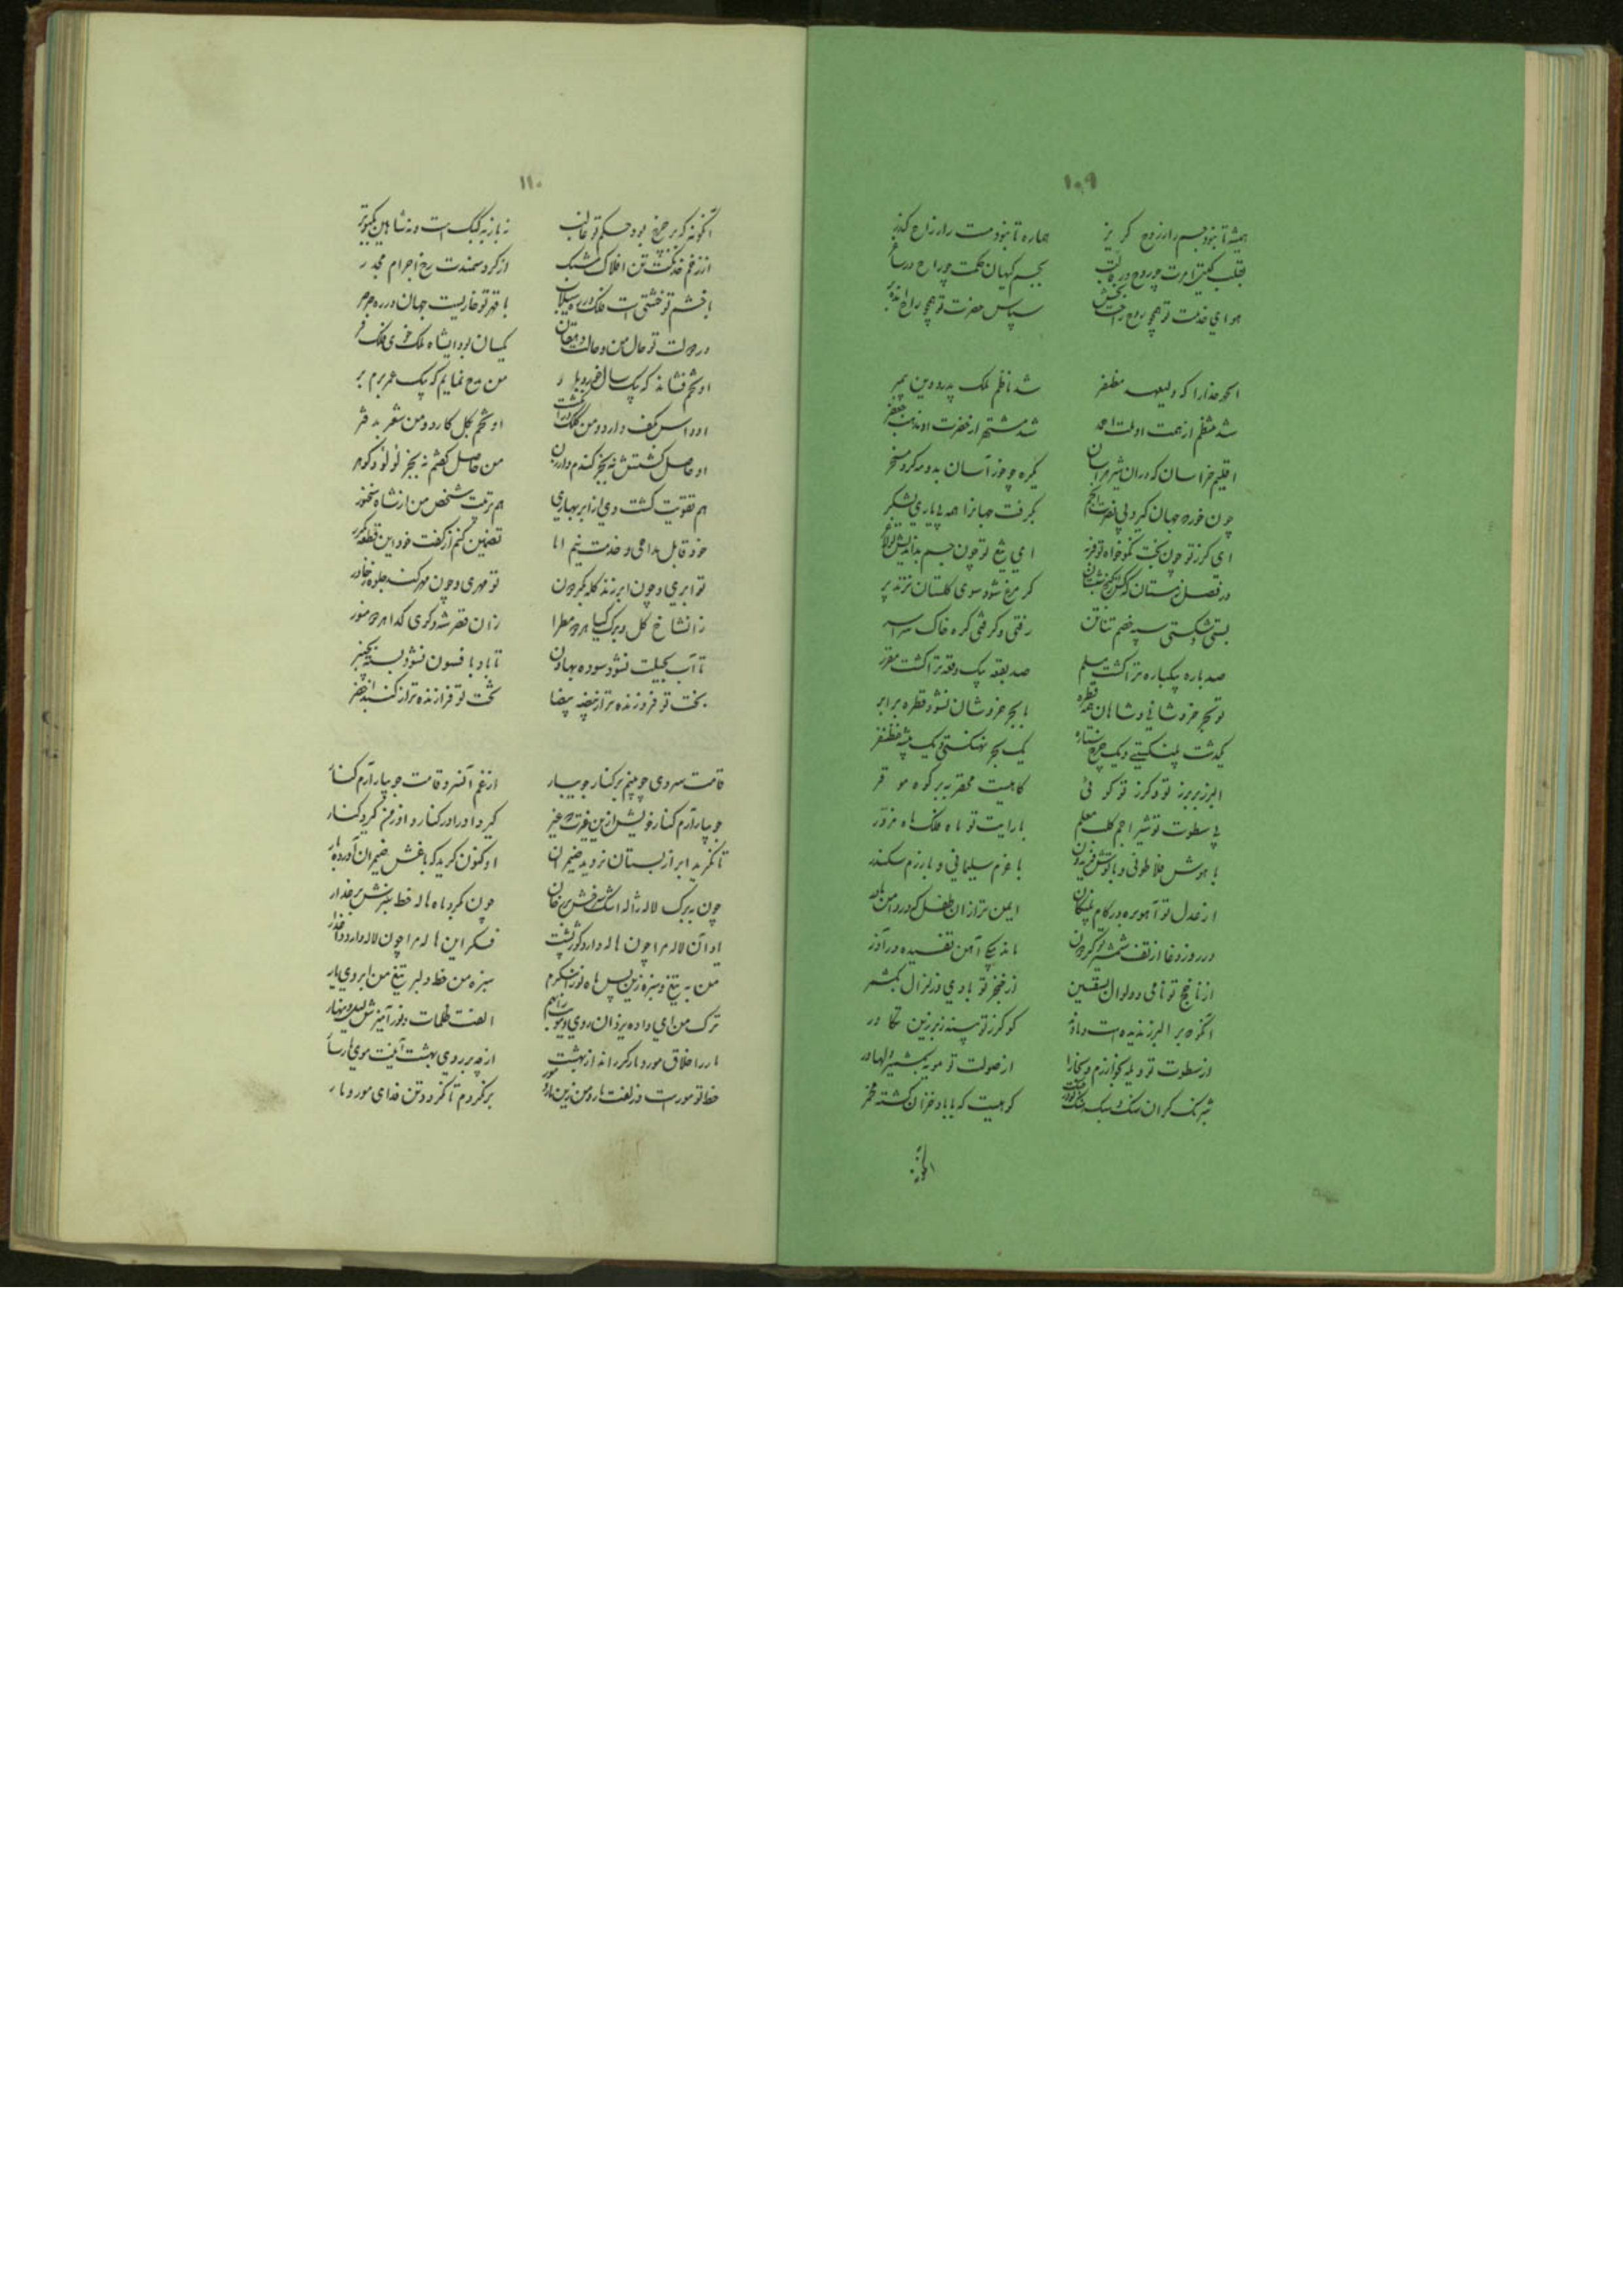 ۱۰۹
همیشه تا نبود جسم را ز روح گریز هماره تا نبود مست را ز راح گذر
بقلب گیتی امرت چو روح در بجسم گیهان حکمت چو راح در ساغر
هوای خدمت تو همچو روح سپاس حضرت تو همچو راح
الحمد خدا را که ولیعهد مظفر شد ناظم ملک پدر و دین پیمبر
شد منتظم از همت او ملت احمد شد مشتهر از حضرت او مذهب جعفر
اقلیم خراسان که در آن شیر هراسان یکره چو خور آسان بدو مه کرد مسخر
چون خور که جهان گیرد بی نصرت انجم بگرفت جهانرا همه بی یاری لشکر
ای گرز تو چون بخت نکوخواه تو فربه ای تیغ تو چون جسم بداندیش تو لاغر
در فصل زمستان که گر مرغ شود سوی گلستان نزند پر
بستی و شکستی سپه خصم تناتن رفتی و گرفتی کره خاک سراسر
صد باره بیکباره ترا گشت مسلم صد بقعه بیک وقعه ترا گشت مقرر
تو بحر خروشانی و شاهان همه قطره با بحر خروشان نشود قطره برابر
یکدشت پلنگستی و یک چرخ ستاره یک بحر نهنگستی و یک بیشه غضنفر
البرز ببرز تو و گرز تو گوئی کاهیست محقر به بر کوه موقر
با سطوت تو شیر اجم کلب معلم با رایت تو ماه فلک ماه مزور
با هوش فلاطونی و با کوشش فریدون با عزم سلیمانی و با رزم سکندر
از عدل تو آهو بره در کام پلنگان ایمن تر از آن طفل که در دامن مادر
در روز وغا از تف شمشیر تو گردون ماند بیکی آهن تفسیده در آذر
از ناچخ تو نامی و ز خنجر تو بادی و زلزال بکشمر
آنکو که بر البرز ندیده است دماوند گو گرز تو بیند زبر زین تکاور
از سطوت تو ویله بخوارزم و بخارا از صولت تو مویه بکشمیر و لهاور
شبرنگ گران سنگ سبک کوهیست که با باد خزان گشته مخمر
۱۱۰
آنگونه که بر چرخ بود حکم تو غالب نه باز به کبک است و نه شاهین بکبوتر
از زخم خدنگت تن افلاک مشبک از گرد سمندت رخ اجرام مجدر
با خشم تو خشتی است فلک در ره سیلاب با قهر تو خاریست جهان در ره صرصر
در دولت تو حال من و حالت دهقان یکسان بود ایشاه ملک خوی فلک فر
او تخم فشاند که بیک سال خورد بار من مدح نمایم که بیک عمر برم بر
او داس بکف دارد و من کلک در انگشت او تخم بگل کارد و من شعر به دفتر
او حاصل کشتش نه بجز گندم و ارزن من حاصل کشتم نه بجز لولو و گوهر
هم تقویت کشت وی از ابر بهاری هم تربیت شخص من از شاه سخنور
خود قابل مداحی و خدمت نیم اما تضمین کنم از گفت خود این قطعه مکرر
تو ابری و چون ابر زند کله بگردون تو مهری و چون مهر کند جلوه ز خاور
زانشاخ گل و برگ گیا هر دو مطرا زان قصر شه و کوی گدا هر دو منور
تا آب بحیلت نشود سوده بهاون تا باد بافسون نشود بسته بچنبر
بخت تو فروزنده تر از بیضه بیضا تخت تو فرازنده تر از گنبد اخضر
قامت سروی چو بینم بر کنار جویبار از غم آنسرو قامت جویبار آرم کنار
جویبار آرم کنار خویش ازین غیرت که غیر گیرد او را در کنار و او ز من گیرد کنار
تا نگرید ابر از بستان نروید ضیمران او کنون گرید که باغش ضیمران آورده بار
چون ببرگ لاله ژاله اشک چون بگرد ماه هاله خط سبزش بر عذار
او آن لاله مرا چون هاله دارد گوژپشت فکر این هاله مرا چون لاله دارد داغدار
من به تیغ و سبزه زین پس ماه نو را ننگرم سبزه من خط دلبر تیغ من ابروی یار
ترک من ای داده یزدان روی و مویت را بهم الفت ظلمات و نور آمیزش لیل و نهار
مار را خلاق مور و مار گر راند از بهشت از چه بر روی بهشت آئینت موی مارسار
خط تو مور است و زلفت مار و من زین مار و مور برنگردم تا نگردد تن فدای مور و مار
آنگونه